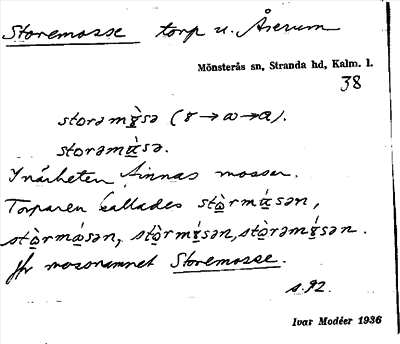 Storemosse torp u. Åserum
Mönsterås sn, Stranda hd, Kalm. l.
38
storəmɤ̀sə (ɤ→ω→a).
storəmɑ̀sə.
I närheten finnas mossar.
Torparen kallades stòrmɑ́sən,
stòrmɑ́sən, stòrmɤ́sən, stòrəmɤ́sən.
Jfr mossnamnet Storemosse.
s. 92.
Ivar Modéer 1936